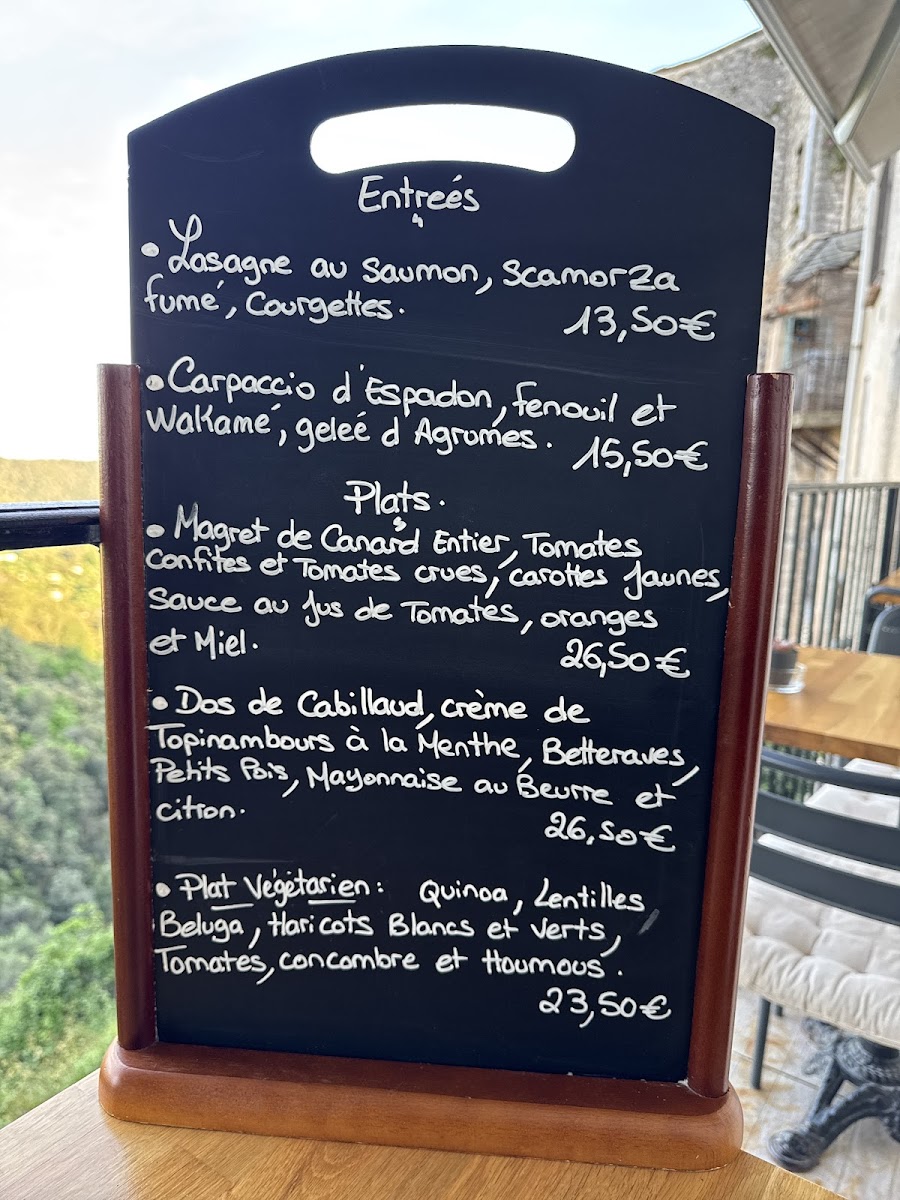 Entreés
• Lasagne au Saumon, Scamorza
fumé, Courgettes.
13,50€
• Carpaccio d'Espadon, fenouil et
Wakamé, geleé d'Agrumes.
15,50€
Plats.
• Magret de Canard Entier, Tomates
Confites et Tomates crues, carottes jaunes,
Sauce au Jus de Tomates, oranges
et Miel.
26,50€
• Dos de Cabillaud, crème de
Topinambours à la Menthe, Betteraves,
Petits Pois, Mayonnaise au Beurre et
citron.
26,50€
• Plat Végétarien: Quinoa, Lentilles
Beluga, Haricots Blancs et Verts,
Tomates, concombre et Houmous.
23,50€